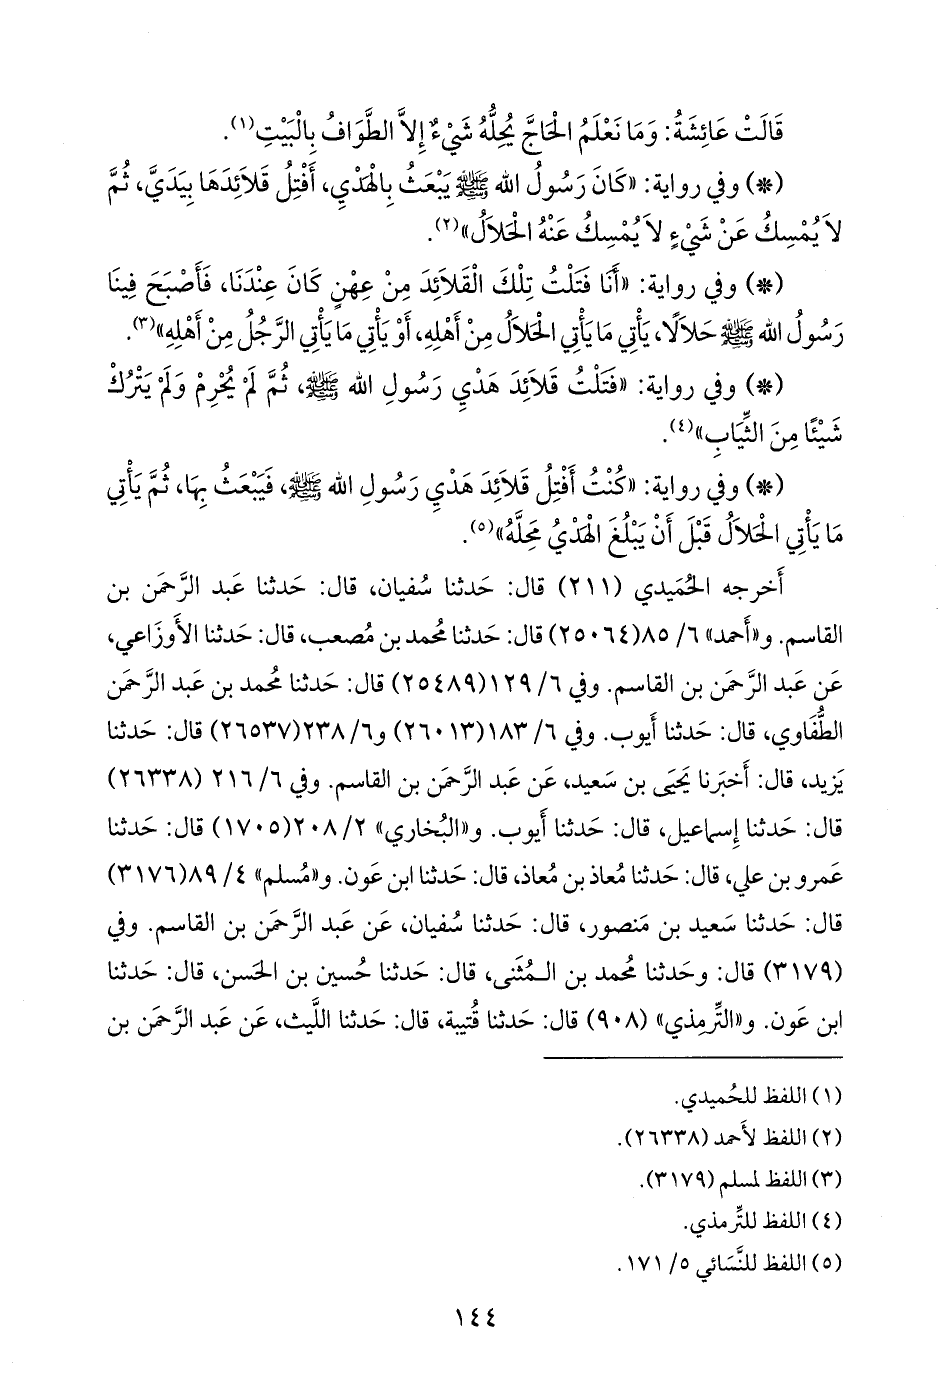 قَالَتْ عَائِشَةُ: وَمَا نَعْلَمُ الْحَاجَّ يُحِلُّهُ شَيْءٌ إِلاَّ الطَّوَافُ بِالْبَيْتِ»(١).
(*) وفي رواية: «كَانَ رَسُولُ الله ﷺ يَبْعَثُ بِالهَدْيِ، أَفْتِلُ قَلاَئِدَهَا بِيَدَيَّ، ثُمَّ
لاَ يُمْسِكُ عَنْ شَيْءٍ لاَ يُمْسِكُ عَنْهُ الْحَلاَلُ»(٢).
(*) وفي رواية: «أَنَا فَتَلْتُ تِلْكَ الْقَلاَئِدَ مِنْ عِهْنٍ كَانَ عِنْدَنَا، فَأَصْبَحَ فِينَا
رَسُولُ الله ﷺ حَلاَلًا، يَأْتِي مَا يَأْتِي الْحَلاَلُ مِنْ أَهْلِهِ، أَوْ يَأْتِي مَا يَأْتِي الرَّجُلُ مِنْ أَهْلِهِ»(٣).
(*) وفي رواية: «فَتَلْتُ قَلاَئِدَ هَدْيِ رَسُولِ الله ﷺ، ثُمَّ لَمْ يُحْرِمْ وَلَمْ يَتْرُكْ
شَيْئًا مِنَ الثِّيَابِ»(٤).
(*) وفي رواية: «كُنْتُ أَفْتِلُ قَلاَئِدَ هَدْيِ رَسُولِ الله ﷺ، فَيَبْعَثُ بِهَا، ثُمَّ يَأْتِي
مَا يَأْتِي الْحَلاَلُ قَبْلَ أَنْ يَبْلُغَ الْهَدْيُ مَحِلَّهُ»(٥).
أَخرجه الحُمَيدي (٢١١) قال: حَدثنا سُفيان، قال: حَدثنا عَبد الرَّحمَن بن
القاسم. و«أَحمد» ٦/ ٨٥(٢٥٠٦٤) قال: حَدثنا مُحمد بن مُصعب، قال: حَدثنا الأَوزَاعي،
عَن عَبد الرَّحمَن بن القاسم. وفي ٦/ ١٢٩(٢٥٤٨٩) قال: حَدثنا مُحمد بن عَبد الرَّحمَن
الطُّفَاوي، قال: حَدثنا أَيوب. وفي ٦/ ١٨٣(٢٦٠١٣) و٦/ ٢٣٨(٢٦٥٣٧) قال: حَدثنا
يَزيد، قال: أَخبَرنا يَحيَى بن سَعيد، عَن عَبد الرَّحمَن بن القاسم. وفي ٦/ ٢١٦ (٢٦٣٣٨)
قال: حَدثنا إِسماعيل، قال: حَدثنا أَيوب. و«البُخاري» ٢/ ٢٠٨(١٧٠٥) قال: حَدثنا
عَمرو بن علي، قال: حَدثنا مُعاذ بن مُعاذ، قال: حَدثنا ابن عَون. و«مُسلم» ٤/ ٨٩(٣١٧٦)
قال: حَدثنا سَعيد بن مَنصور، قال: حَدثنا سُفيان، عَن عَبد الرَّحمَن بن القاسم. وفي
(٣١٧٩) قال: وحَدثنا مُحمد بن الـمُثَنى، قال: حَدثنا حُسين بن الحَسن، قال: حَدثنا
ابن عَون. و«التِّرمِذي» (٩٠٨) قال: حَدثنا قُتيبة، قال: حَدثنا اللَّيث، عَن عَبد الرَّحمَن بن
(١) اللفظ للحُميدي.
(٢) اللفظ لأَحمد (٢٦٣٣٨).
(٣) اللفظ لمسلم (٣١٧٩).
(٤) اللفظ للتِّرمذي.
(٥) اللفظ للنَّسَائي ٥/ ١٧١.
١٤٤